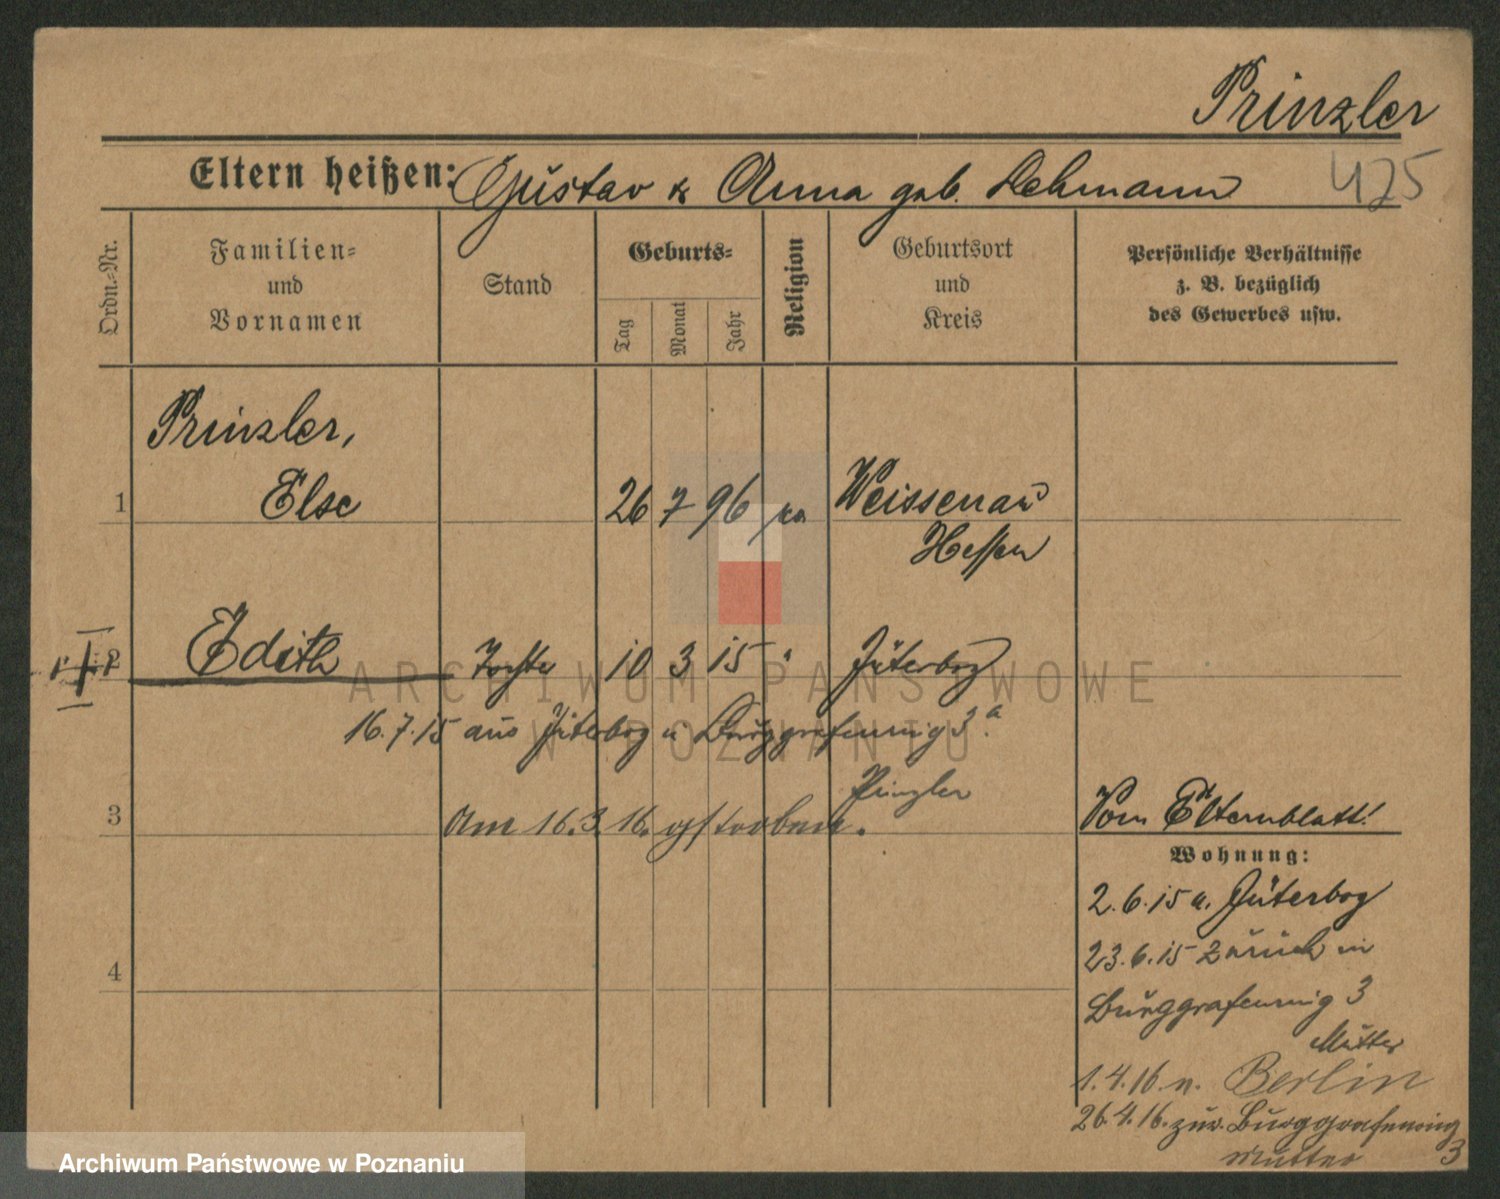 Prinzler
Eltern heißen: Gustav & Anna geb. Lehmann
425
Ordn.-Nr.
Familien= und Vornamen
Stand
Geburts=
Tag
Monat
Jahr
Religion
Geburtsort und Kreis
Persönliche Verhältnisse
z. B. bezüglich
des Gewerbes usw.
Prinzler,
1 Else 26 7 96 Weissenau
Hessen
2 Edith Tochter 10 3 15 " Jüterbog
16.7.15 aus Jüterbog n Burggrafenring 3a
Prinzler
3 Am 16.3.16. gestorben.
Vom Elternblatt!
Wohnung:
2.6.15 n. Jüterbog
23.6.15 zurück in
Burggrafenring 3
Mutter
4
1.4.16 n. Berlin
26.4.16. zur. Burggrafenring
Mutter 3
ARCHIWUM PAŃSTWOWE
W POZNANIU
Archiwum Państwowe w Poznaniu